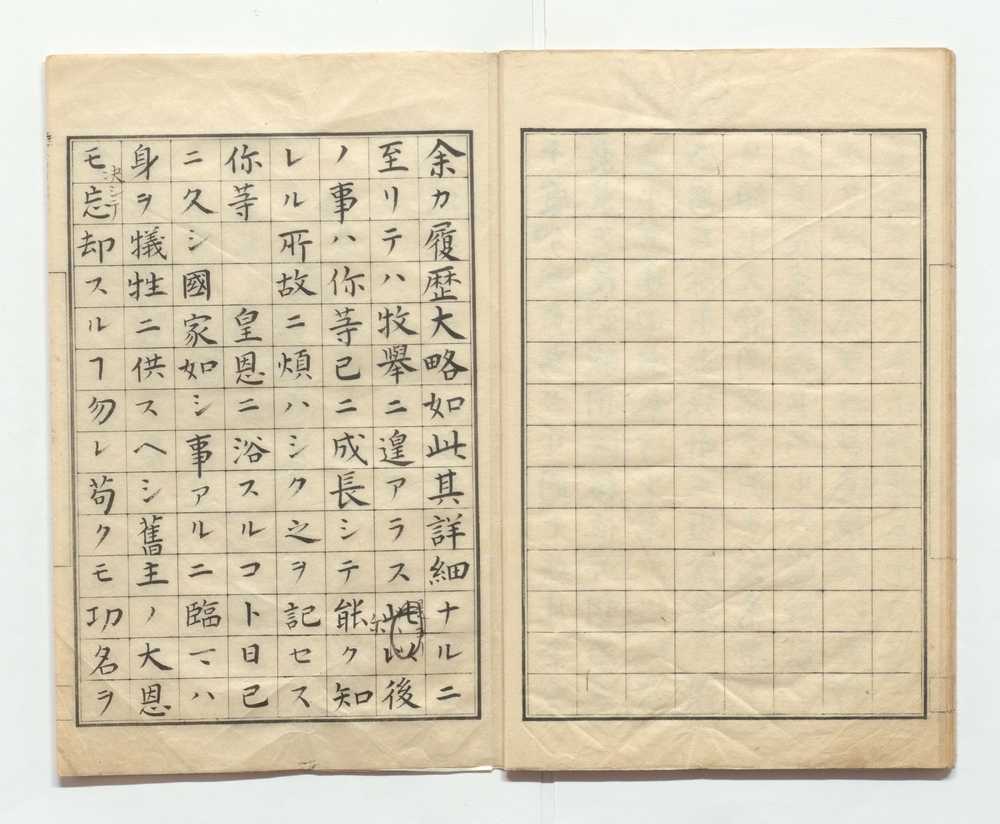 余カ履歴大略如此其詳細ナルニ
至リテハ枚擧ニ遑アラス以後
ノ事ハ你等已ニ成長シテ能ク知
レル所故ニ煩ハシク之ヲ記セス
你等 皇恩ニ浴スルコト日已
ニ久シ國家如シ事アルニ臨マハ
身ヲ犠牲ニ供スヘシ舊主ノ大恩
モ決シテ忘却スルヿ勿レ苟クモ功名ヲ